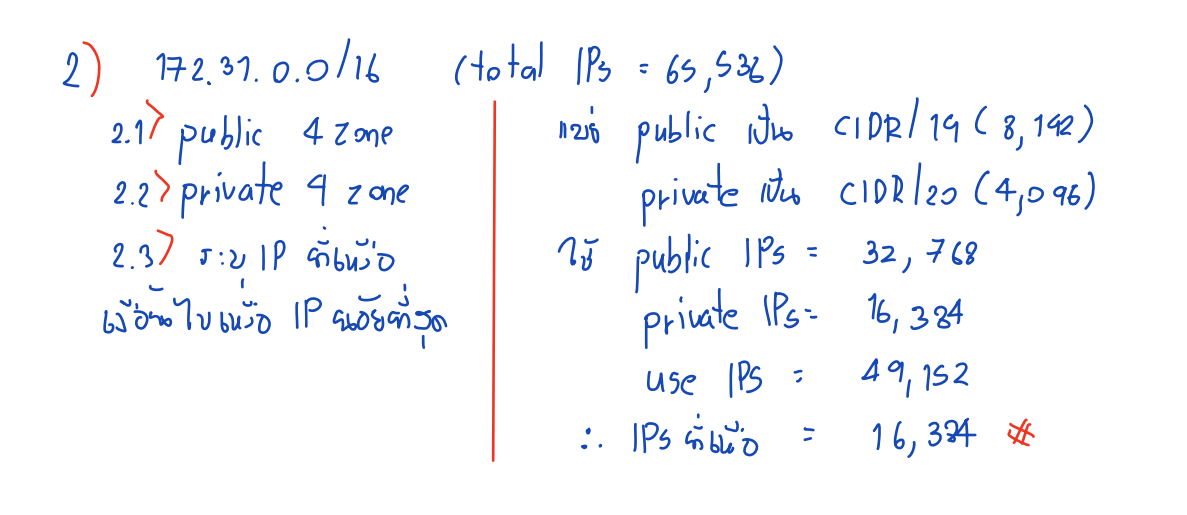 2) 172.31.0.0/16 (total IPs = 65,536)
2.1> public 4 zone
2.2> private 4 zone
2.3> ระบุ IP ที่เหลือ
เงื่อนไขเหลือ IP น้อยที่สุด
แบ่ง public เป็น CIDR/19 (8,192)
private เป็น CIDR/20 (4,096)
ใช้ public IPs = 32,768
private IPs = 16,384
use IPs = 49,152
∴ IPs ที่เหลือ = 16,384 #